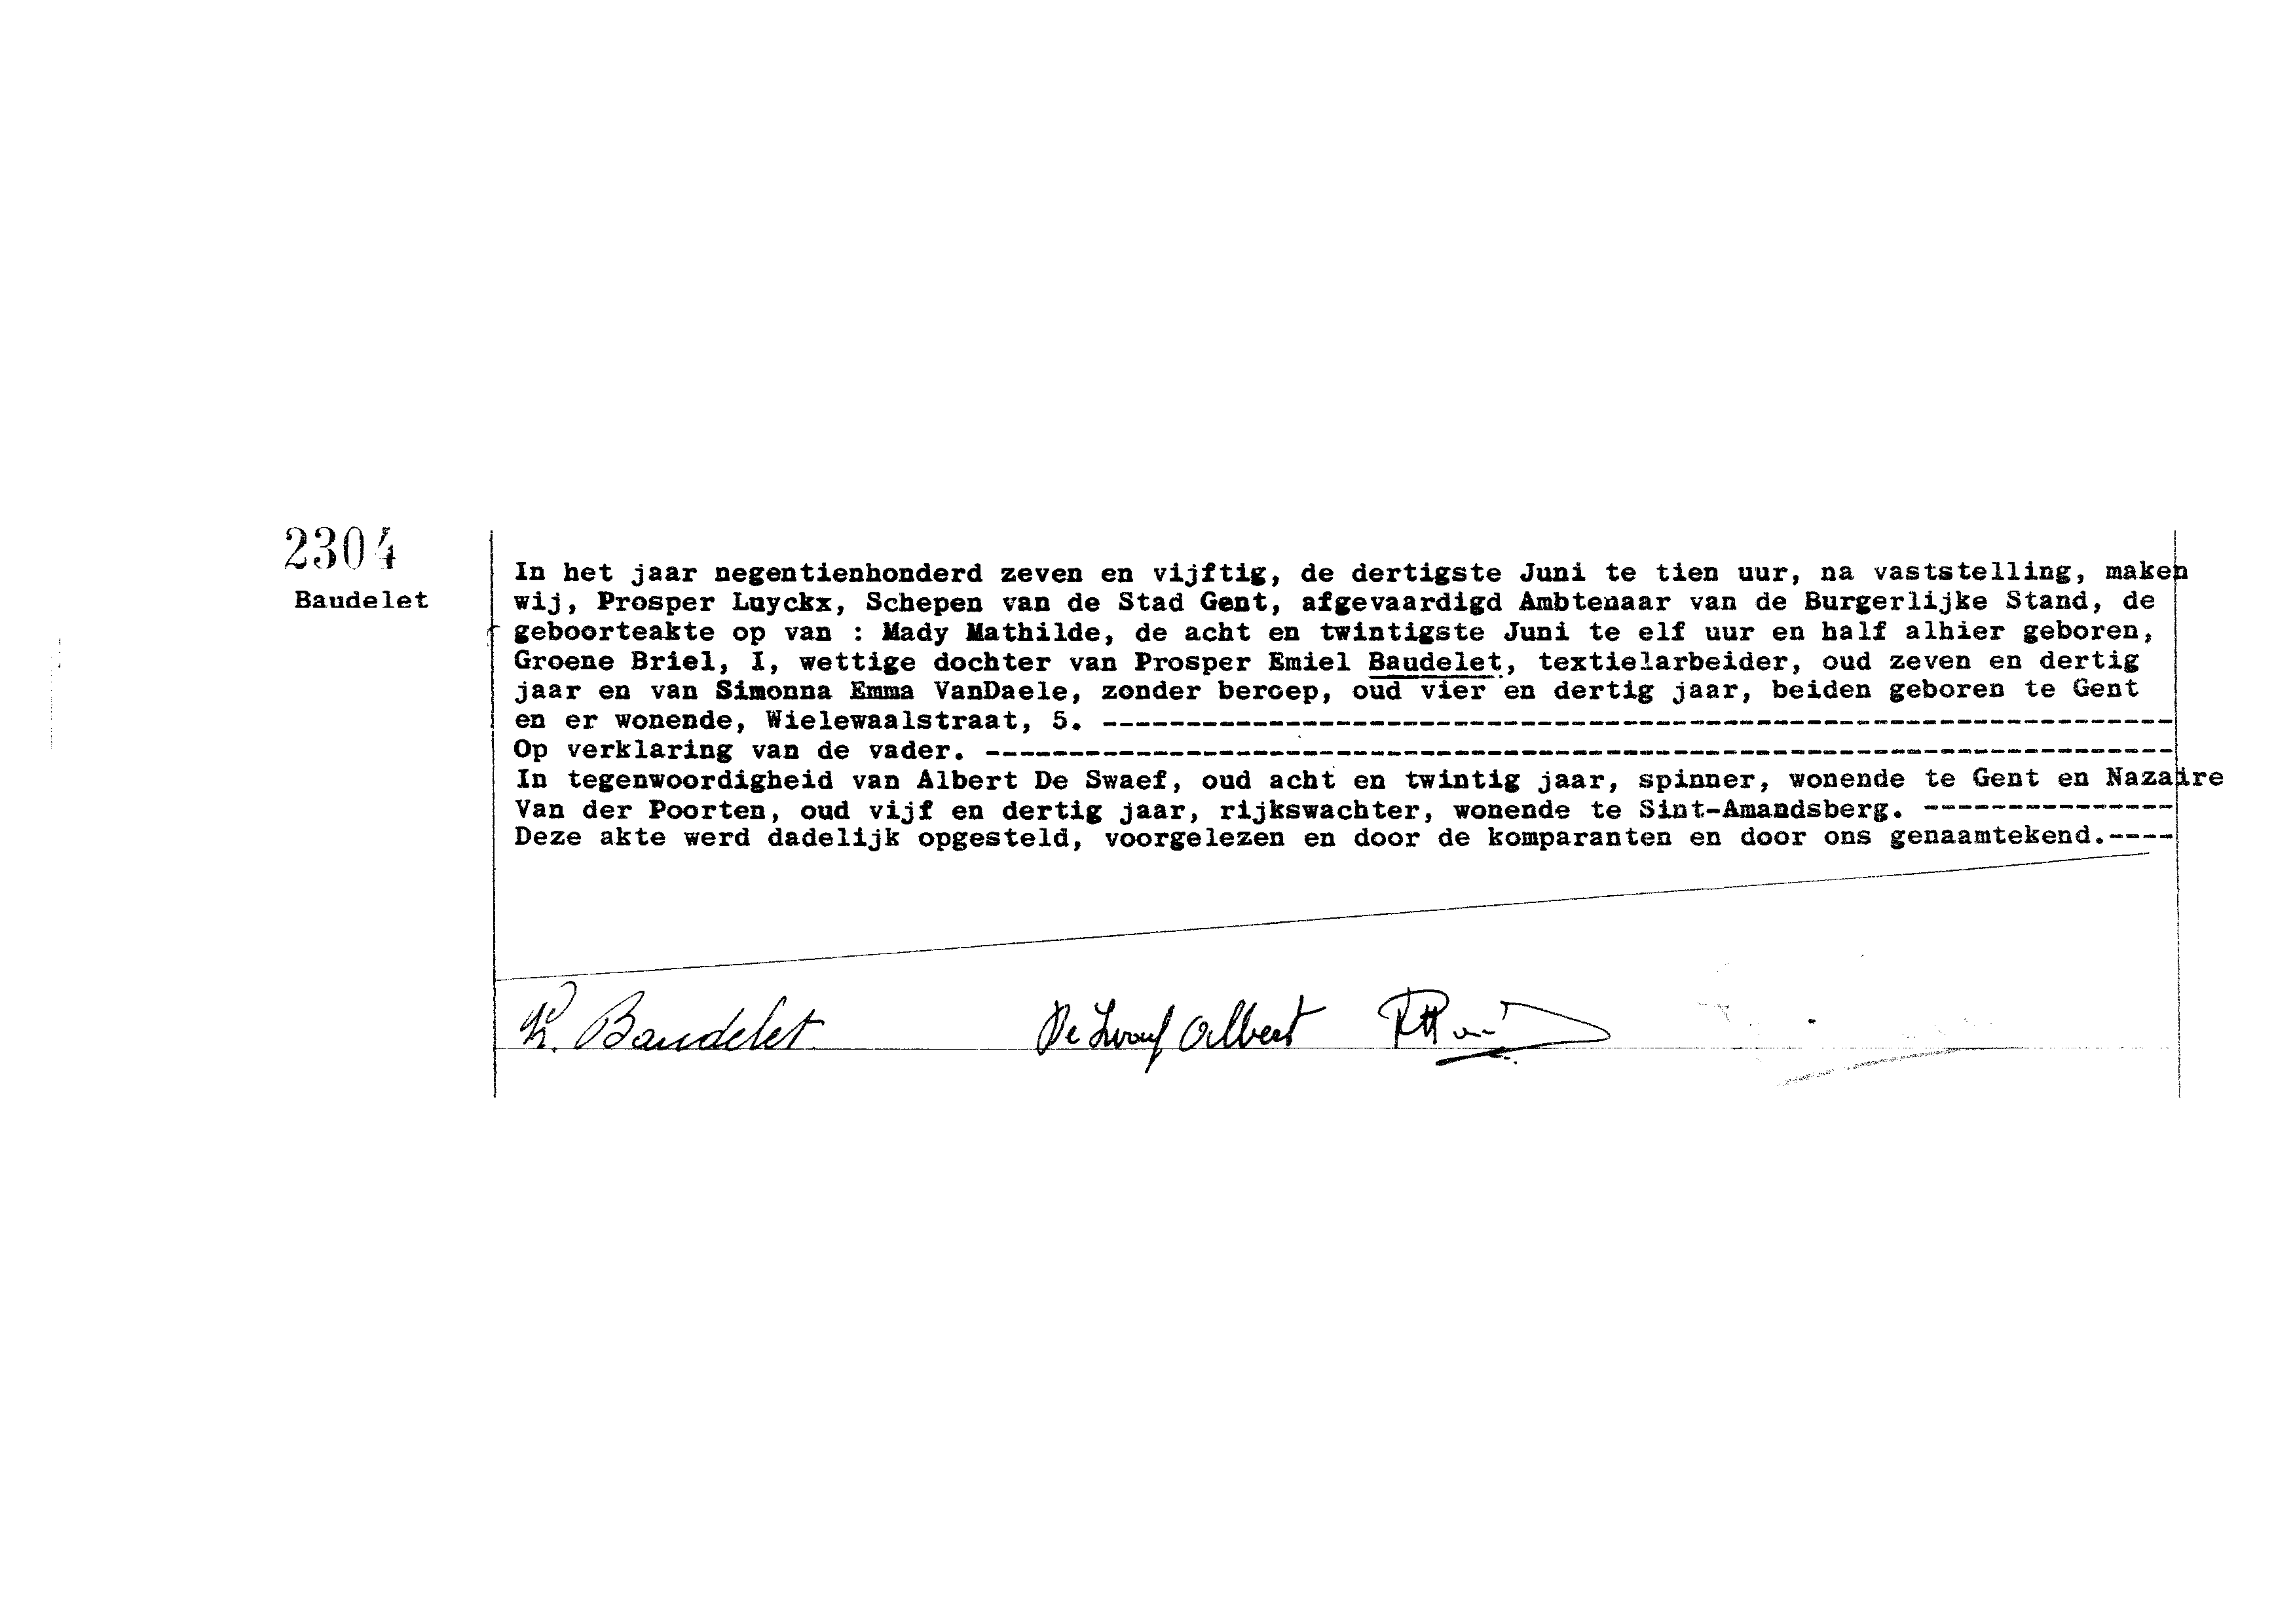 2304
Baudelet
In het jaar negentienhonderd zeven en vijftig, de dertigste Juni te tien uur, na vaststelling, maken
wij, Prosper Luyckx, Schepen van de Stad Gent, afgevaardigd Ambtenaar van de Burgerlijke Stand, de
geboorteakte op van : Mady Mathilde, de acht en twintigste Juni te elf uur en half alhier geboren,
Groene Briel, I, wettige dochter van Prosper Emiel Baudelet, textielarbeider, oud zeven en dertig
jaar en van Simonna Emma VanDaele, zonder beroep, oud vier en dertig jaar, beiden geboren te Gent
en er wonende, Wielewaalstraat, 5. ----------------------------------------------------------------
Op verklaring van de vader. -----------------------------------------------------------------------
In tegenwoordigheid van Albert De Swaef, oud acht en twintig jaar, spinner, wonende te Gent en Nazaire
Van der Poorten, oud vijf en dertig jaar, rijkswachter, wonende te Sint-Amandsberg. ---------------
Deze akte werd dadelijk opgesteld, voorgelezen en door de komparanten en door ons genaamtekend.----
Baudelet De Swaef Albert